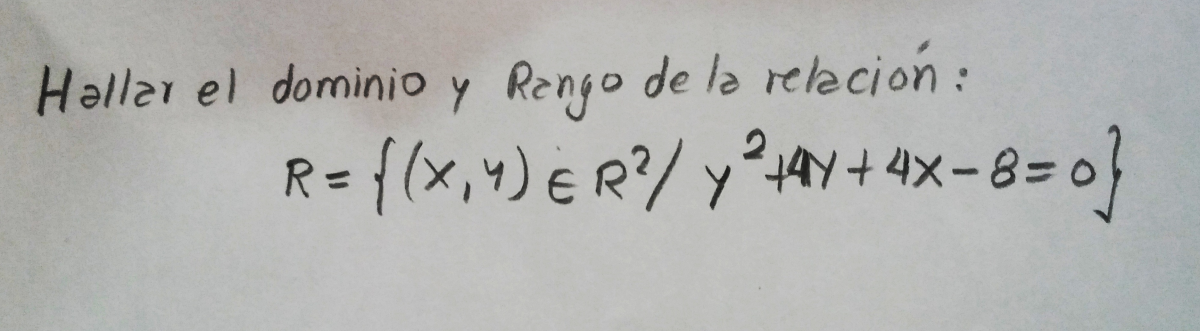 Hallar el dominio y Rango de la relación:
R = {(x, y) ∈ R²/ y²+4y + 4x - 8 = 0}